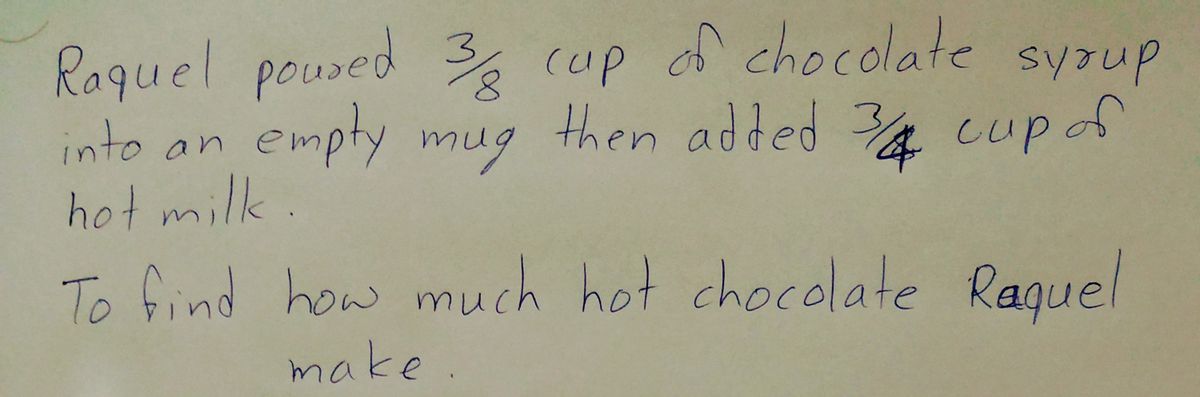 Raquel poured 3/8 cup of chocolate syrup
into an empty mug then added 3/4 cup of
hot milk.
To find how much hot chocolate Raquel
make.